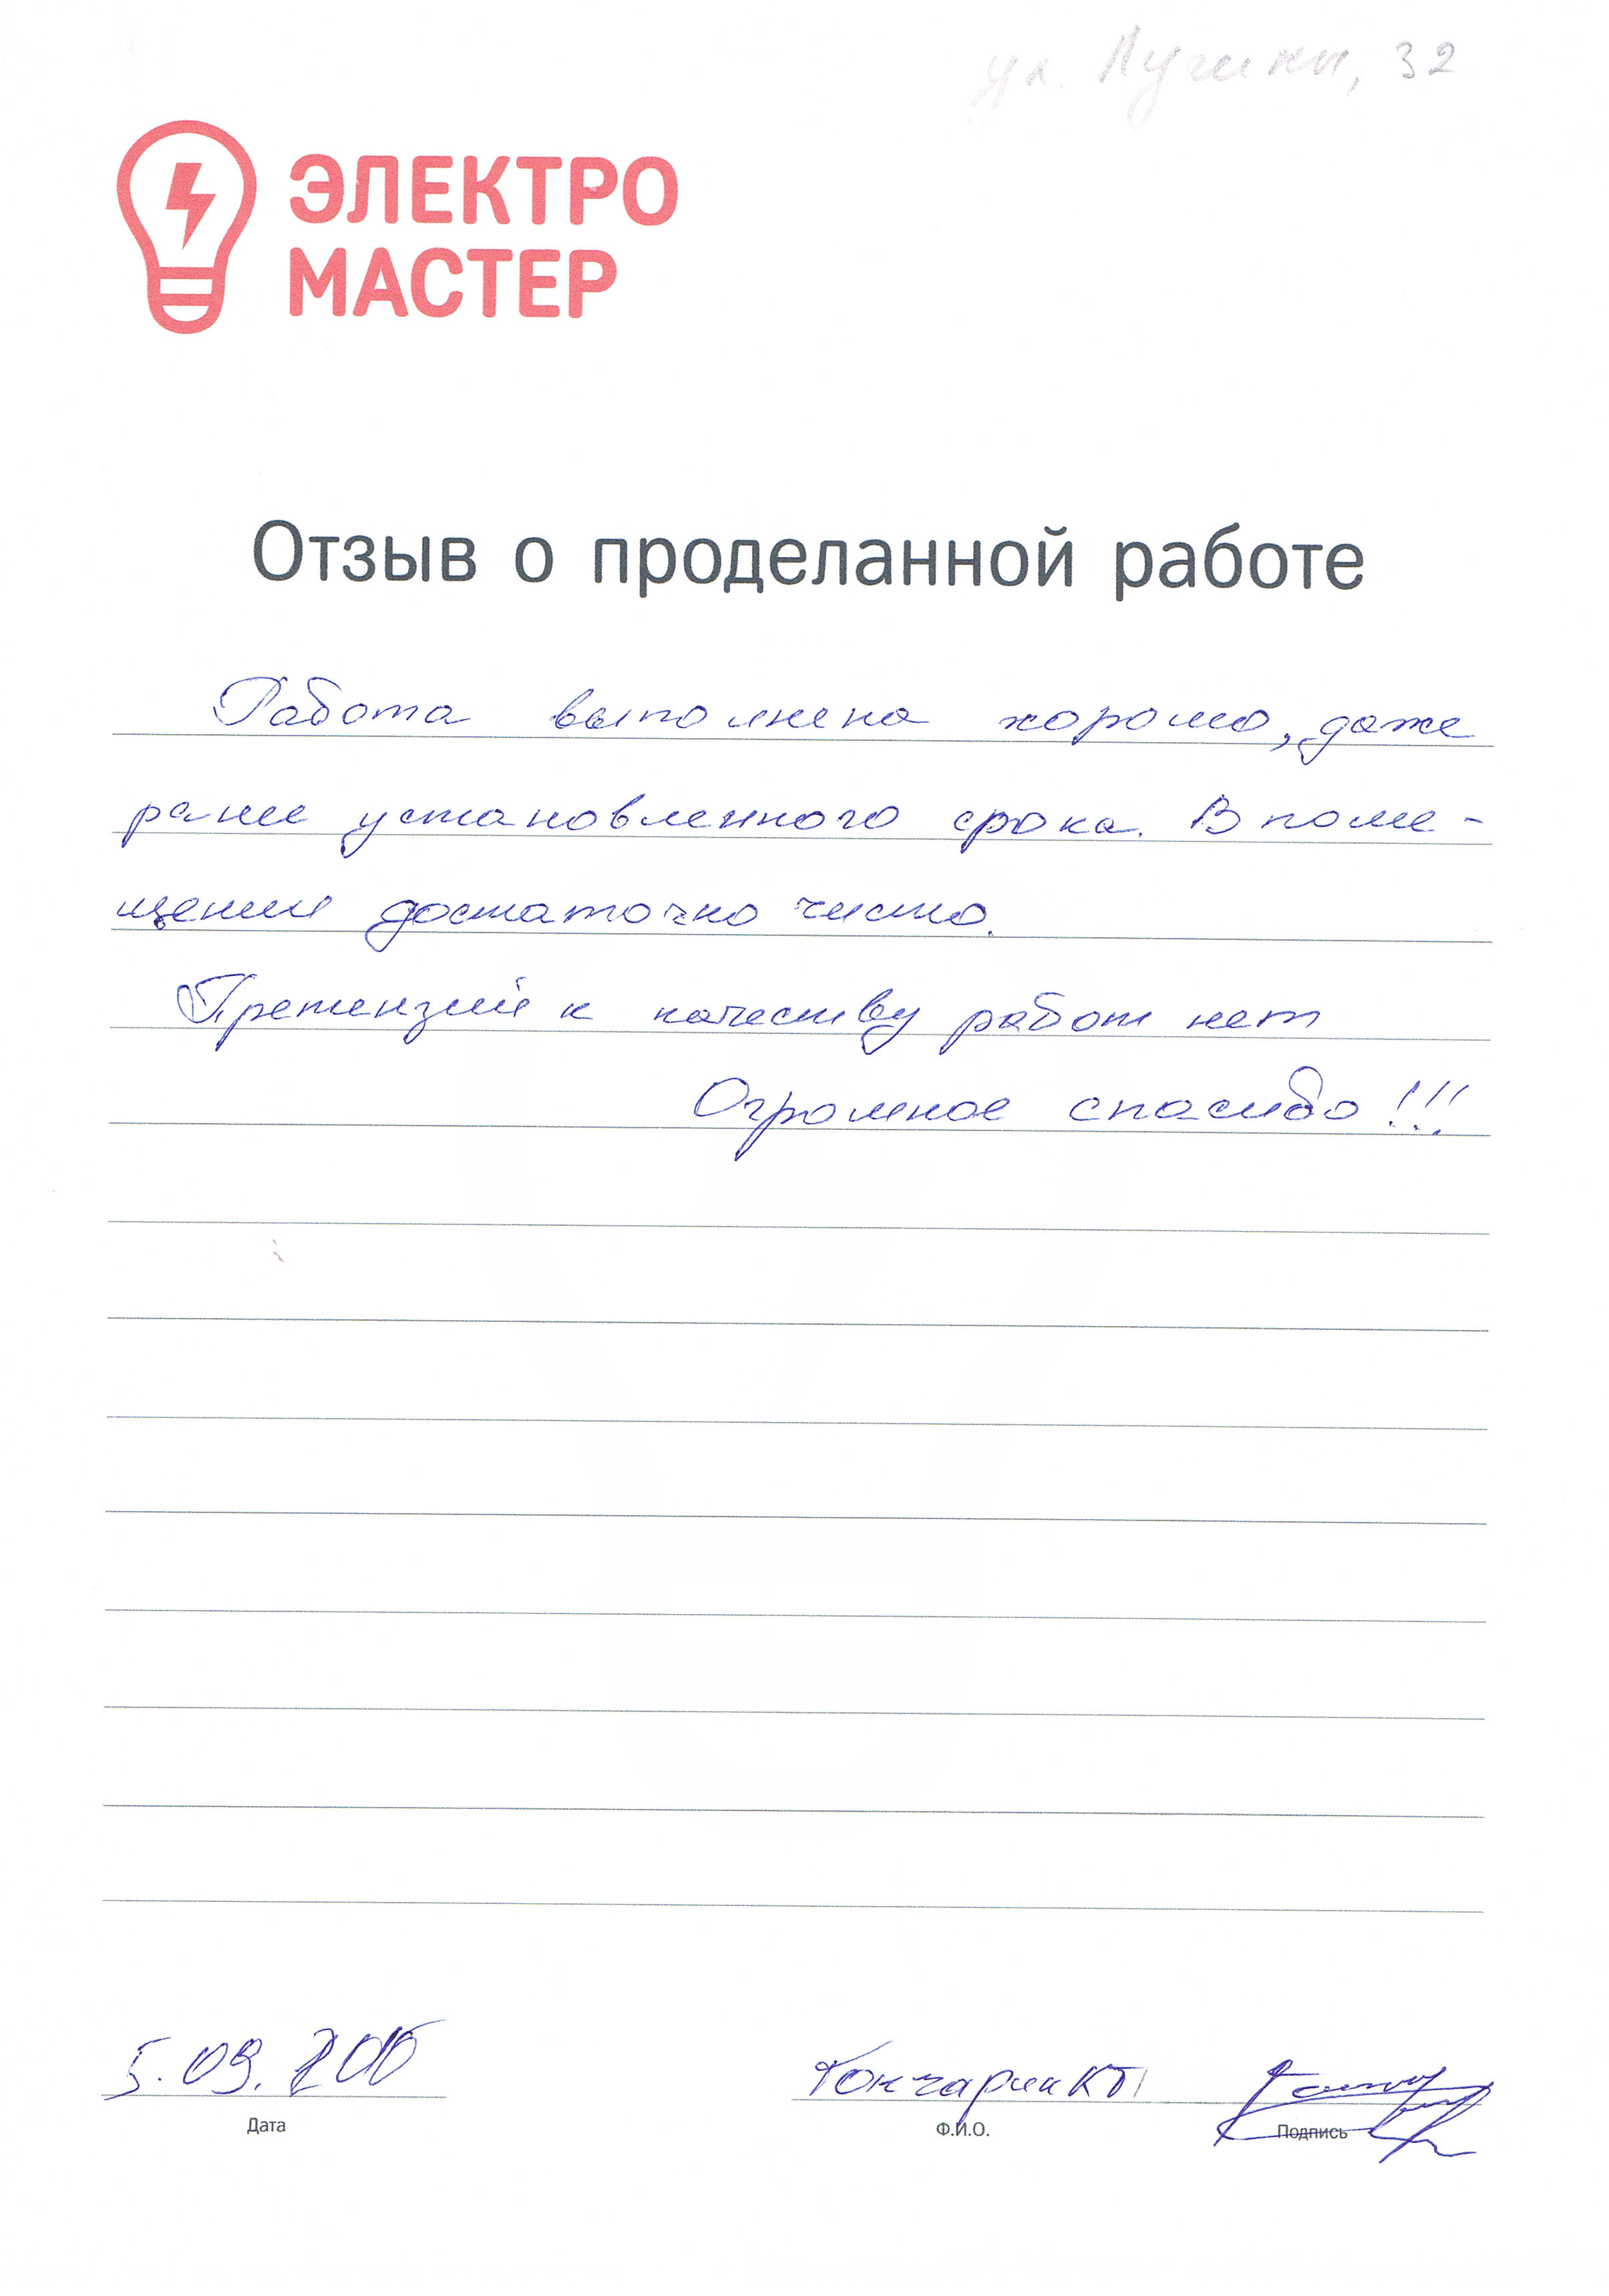 ул. Лугинки, 32
ЭЛЕКТРО
МАСТЕР
Отзыв о проделанной работе
Работа выполнена хорошо, даже
ранее установленного срока. В поме-
щении достаточно чисто.
Претензий к качеству работ нет
Огромное спасибо!!!
5.09.
Дата
Ф.И.О.
Подпись